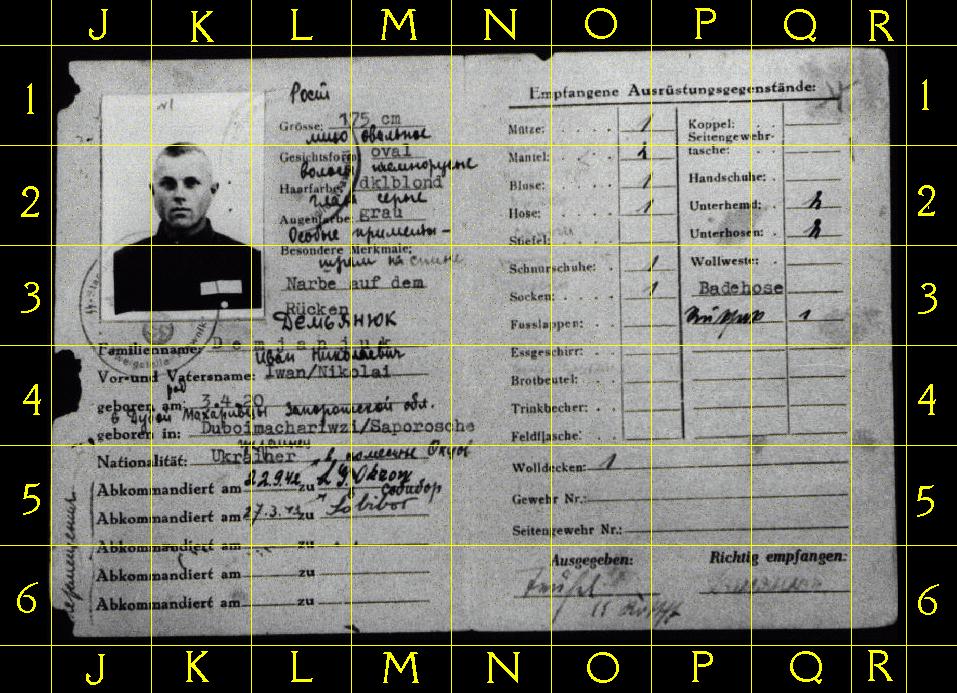 J K L M N O P Q R
1 1
Рост
Grösse: 175 cm
лицо овальное
Gesichtsform: oval
волосы темнорусые
Haarfarbe: dklblond
глаза серые
Augenfarbe: grau
Особые приметы -
Besondere Merkmale:
шрам на спине
Narbe auf dem
Rücken
Демьянюк
Familienname: Demjanjuk
Иван Николаевич
Vor-und Vatersname: Iwan/Nikolai
geboren am: 3.4.20
Запорожской обл.
geboren in: Duboimachariwzi/Saporosche
украинец
Nationalität: Ukrainer
Abkommandiert am 22.9.42 zu L.G. Okzow
Собибор
Abkommandiert am 27.3.43 zu Sobibor
Abkommandiert am zu
Abkommandiert am zu
Abkommandiert am zu
Empfangene Ausrüstungsgegenstände:
Mütze: 1
Mantel: 1
Bluse: 1
Hose: 1
Stiefel:
Schnurschuhe: 1
Socken: 1
Fusslappen:
Essgeschirr:
Brotbeutel:
Trinkbecher:
Feldflasche:
Koppel:
Seitengewehr-
tasche:
Handschuhe:
Unterhemd: 2
Unterhosen: 2
Wollweste:
Badehose
1
Wolldecken: 1
Gewehr Nr.:
Seitengewehr Nr.:
Ausgegeben: Richtig empfangen:
2 2
3 3
4 4
5 5
6 6
J K L M N O P Q R